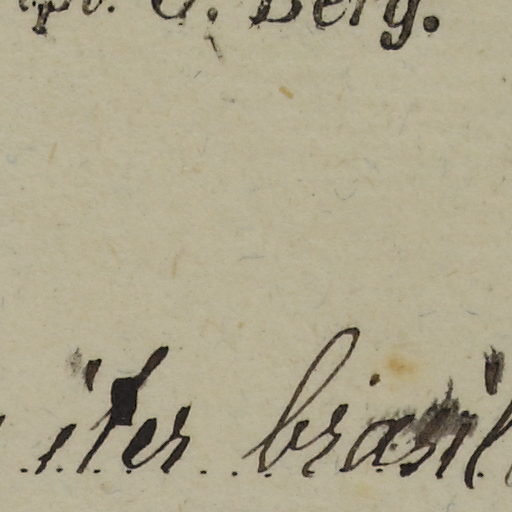 G. Berg.
iter brasil